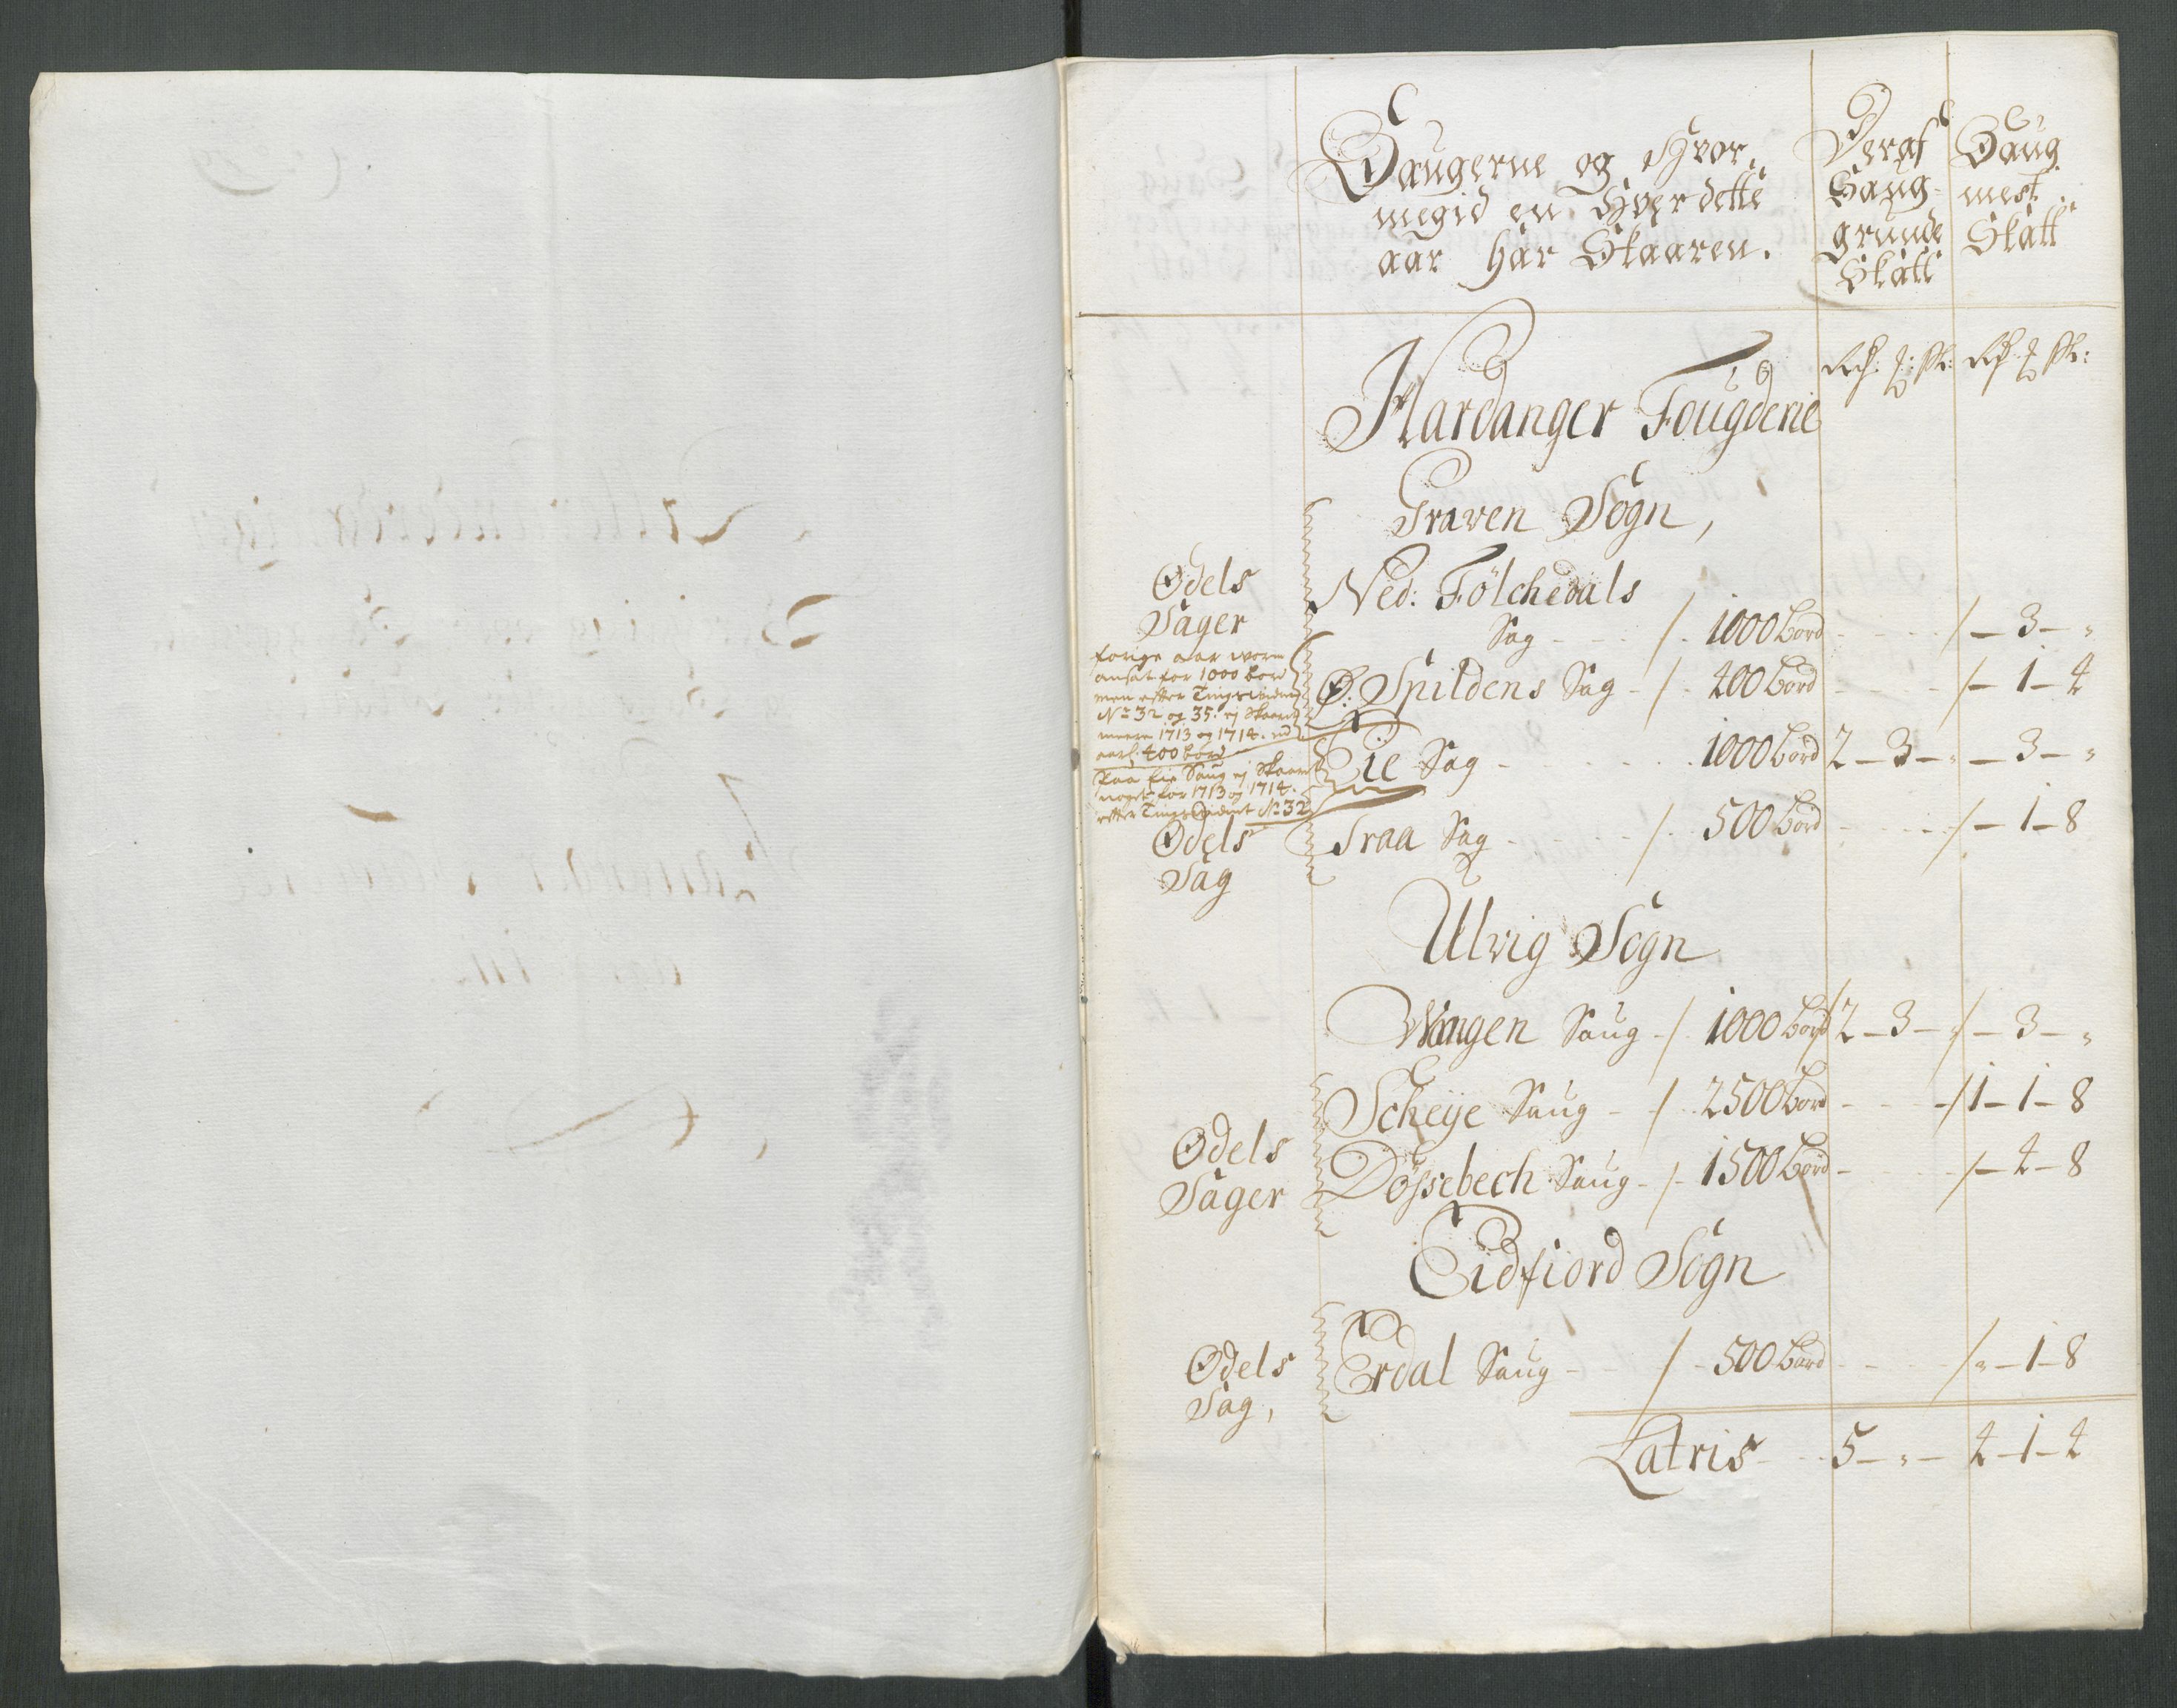 Saugerne og Hvor
megid en Hver dette
aar har Skaaren.
Deraf
Saug-
grunde
Skatt
Saug
mest.
Skatt
Rdr: ẞ: Rdr
Hardanger Fougderie
Graven Sogn,
Ødels
Sager
Ned: Fölchedals
Sag - - / . 1000 bord - - - / — 3 — „
forige aar voren
ansat for 1000 bord
men efter Tingsvidne
No 32 og 35. ej Skaaren
meere 1713 og 1714. end
aarl: 400 bord
Ø: Spildens Sag - / . 400 bord - - - / — 1 — 4
Eie Sag - - - - 1000 bord 2 — 3 — „ — 3 — „
Paa Eie Saug ej Skaaret
noget for 1713 og 1714.
efter Tingsvidnet No 32
Ødels
Sag
Graa Sag - - - / . 500 bord - - - / — 1 — 8
Ulvig Sogn
Wangen Saug - / 1000 bord / 2 — 3 — „ / — 3 — „
Scheye Saug - / . 2500 bord - - - / 1 — 1 — 8
Ødels
Sager
Døssebech Saug - / - 1500 bord - - - / — 4 — 8
Eidfiord Sogn
Ødels
Sag,
Erdal Saug - / - 500 bord - - / „ — 1 — 8
Latris - - 5 — „ — 4 — 1 — 4